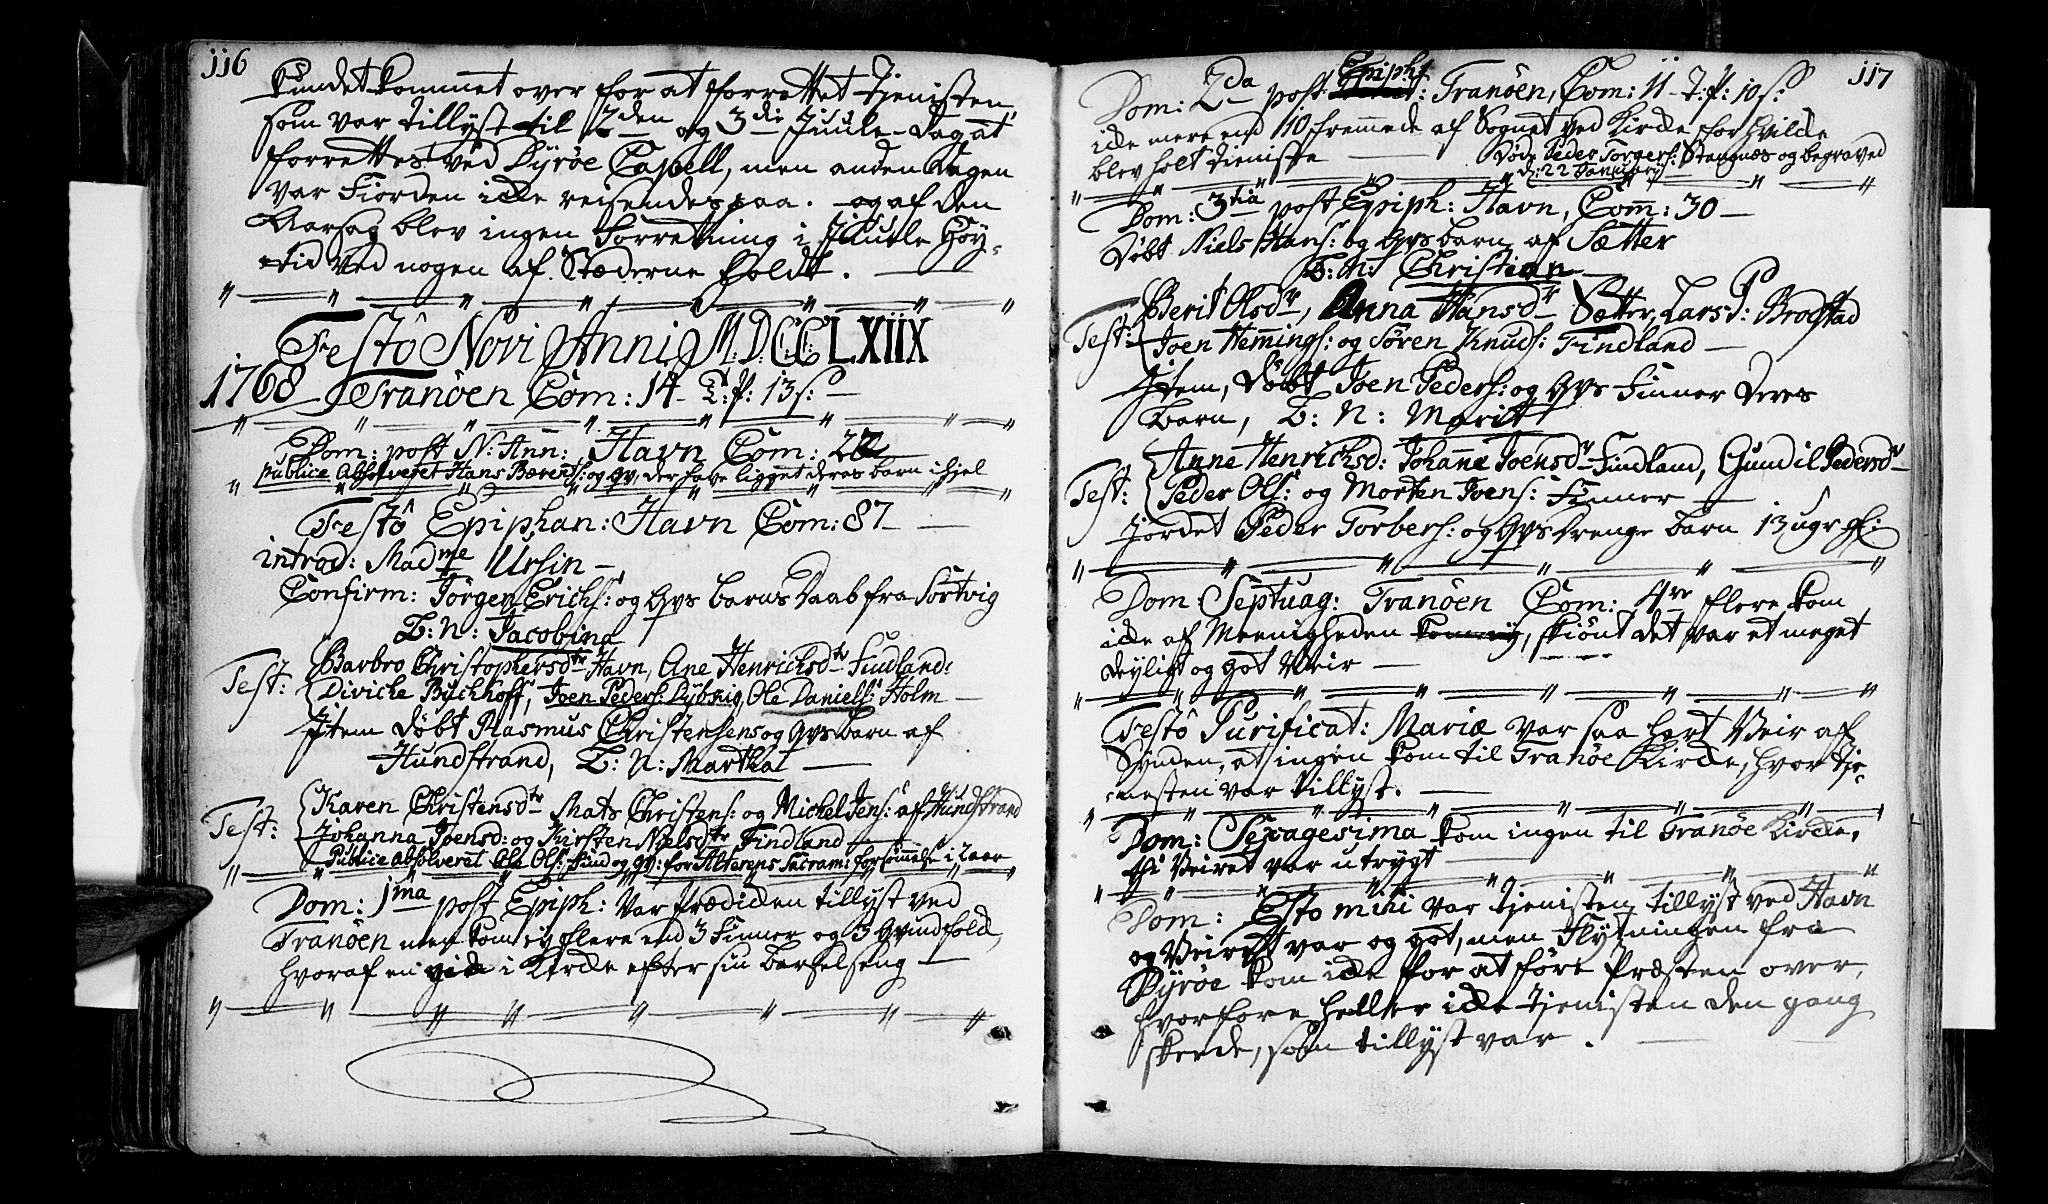 116
kundet kommet over for at forrettet tjenisten
som var tillyst til 2den og 3die Juule-Dag at
forrettes ved Dyrøe Capell, men anden Dagen
var Fiorden icke reisendes paa. og af den
Aarsag blev ingen Forretning i Juule Høy-
tid ved nogen af Stæderne holdt.
Festô Novi Anni M.D.C.C.LXIIX
1768 Tranöen Com: 14 T: p: 13 s:
Dom: post N: Ann: Havn Com: 22
publice Absolveret Hans Bærends: og Qv, der have ligget deres barn ihiel
Festô Epiphan: Havn Com: 87
introd: Madme Ursin
Confirm: Jörgen Erichs: og Qvs barns Daab fra Sørtvig
B: N: Jacobina
Test: Barbro Christophersdtr Havn, Ane Henrichsdtr Findland:
Divicke Buchhoff, Joen Peders: Dybvig, Ole Daniels: Holm
Item Döbt Rasmus Christensens og Qvs barn af
Hundstrand, B: N: Martha
Test: Karen Christensdtr Mats Christens: og Michel Jens: af Hundstrand
Johanna Joensd: og Kirsten Nielsdtr Findland
Publice absolveret Ole Ols: Find og Qv: for Alterens Sacram: forsömmelse i 2 aar
Dom: 1ma post Epiph: var Prædicken tillyst ved
Tranöen men kom ey flere end 3 Finner og 3 Qvindfolck,
hvoraf en gick i Kircke efter sin barselseng
117
Dom: 2da post Epiph: Tranöen, Com: 11 T: p: 10 s:
icke mere end 10 fremmede af Sognet ved Kircke for hvilcke
blev holt tieniste
Døde Peder Torgers: Stangnæs og begraved
d: 22 Januarij
Dom: 3tia post Epiph: Havn, Com: 30
Döbt Niels Hans: og Qvs barn af Sætter
B: N: Christian
Test: Berit Olsdtr, Anna Hansdtr Sætter, Lars P: Brodstad
Joen Hemings: og Sören Knuds: Findland
Item, Döbt Joen Peders: og Qvs Finner deres
barn, B: N: Marit
Test: Anne Henrichsd: Johanne Joensdtr Findland, Gundil Pedersdtr
Peder Ols: og Morten Joens: Finner
Jordet Peder Torbers: og Qvs drenge barn 13 ugr gl:
Dom: Septuag: Tranöen Com: 4re flere kom
icke af Meenigheden kom ey, skiönt det var et meget
deyligt og got Veir
Festô Purificat: Mariæ var saa hart Veir af
Synden, at ingen kom til Tranöe Kircke, hvor tje-
nesten var tillyst.
Dom: Sexagesima kom ingen til Tranöe Kircke,
thi Veiret var utrygt
Dom: Esto mihi var tjenisten tillyst ved Havn
og Veiret var og got, men Flytningen fra
Dyröe kom icke for at före Præsten over,
hvorfore heller icke tjenisten den gang
skeede, som tillyst var.